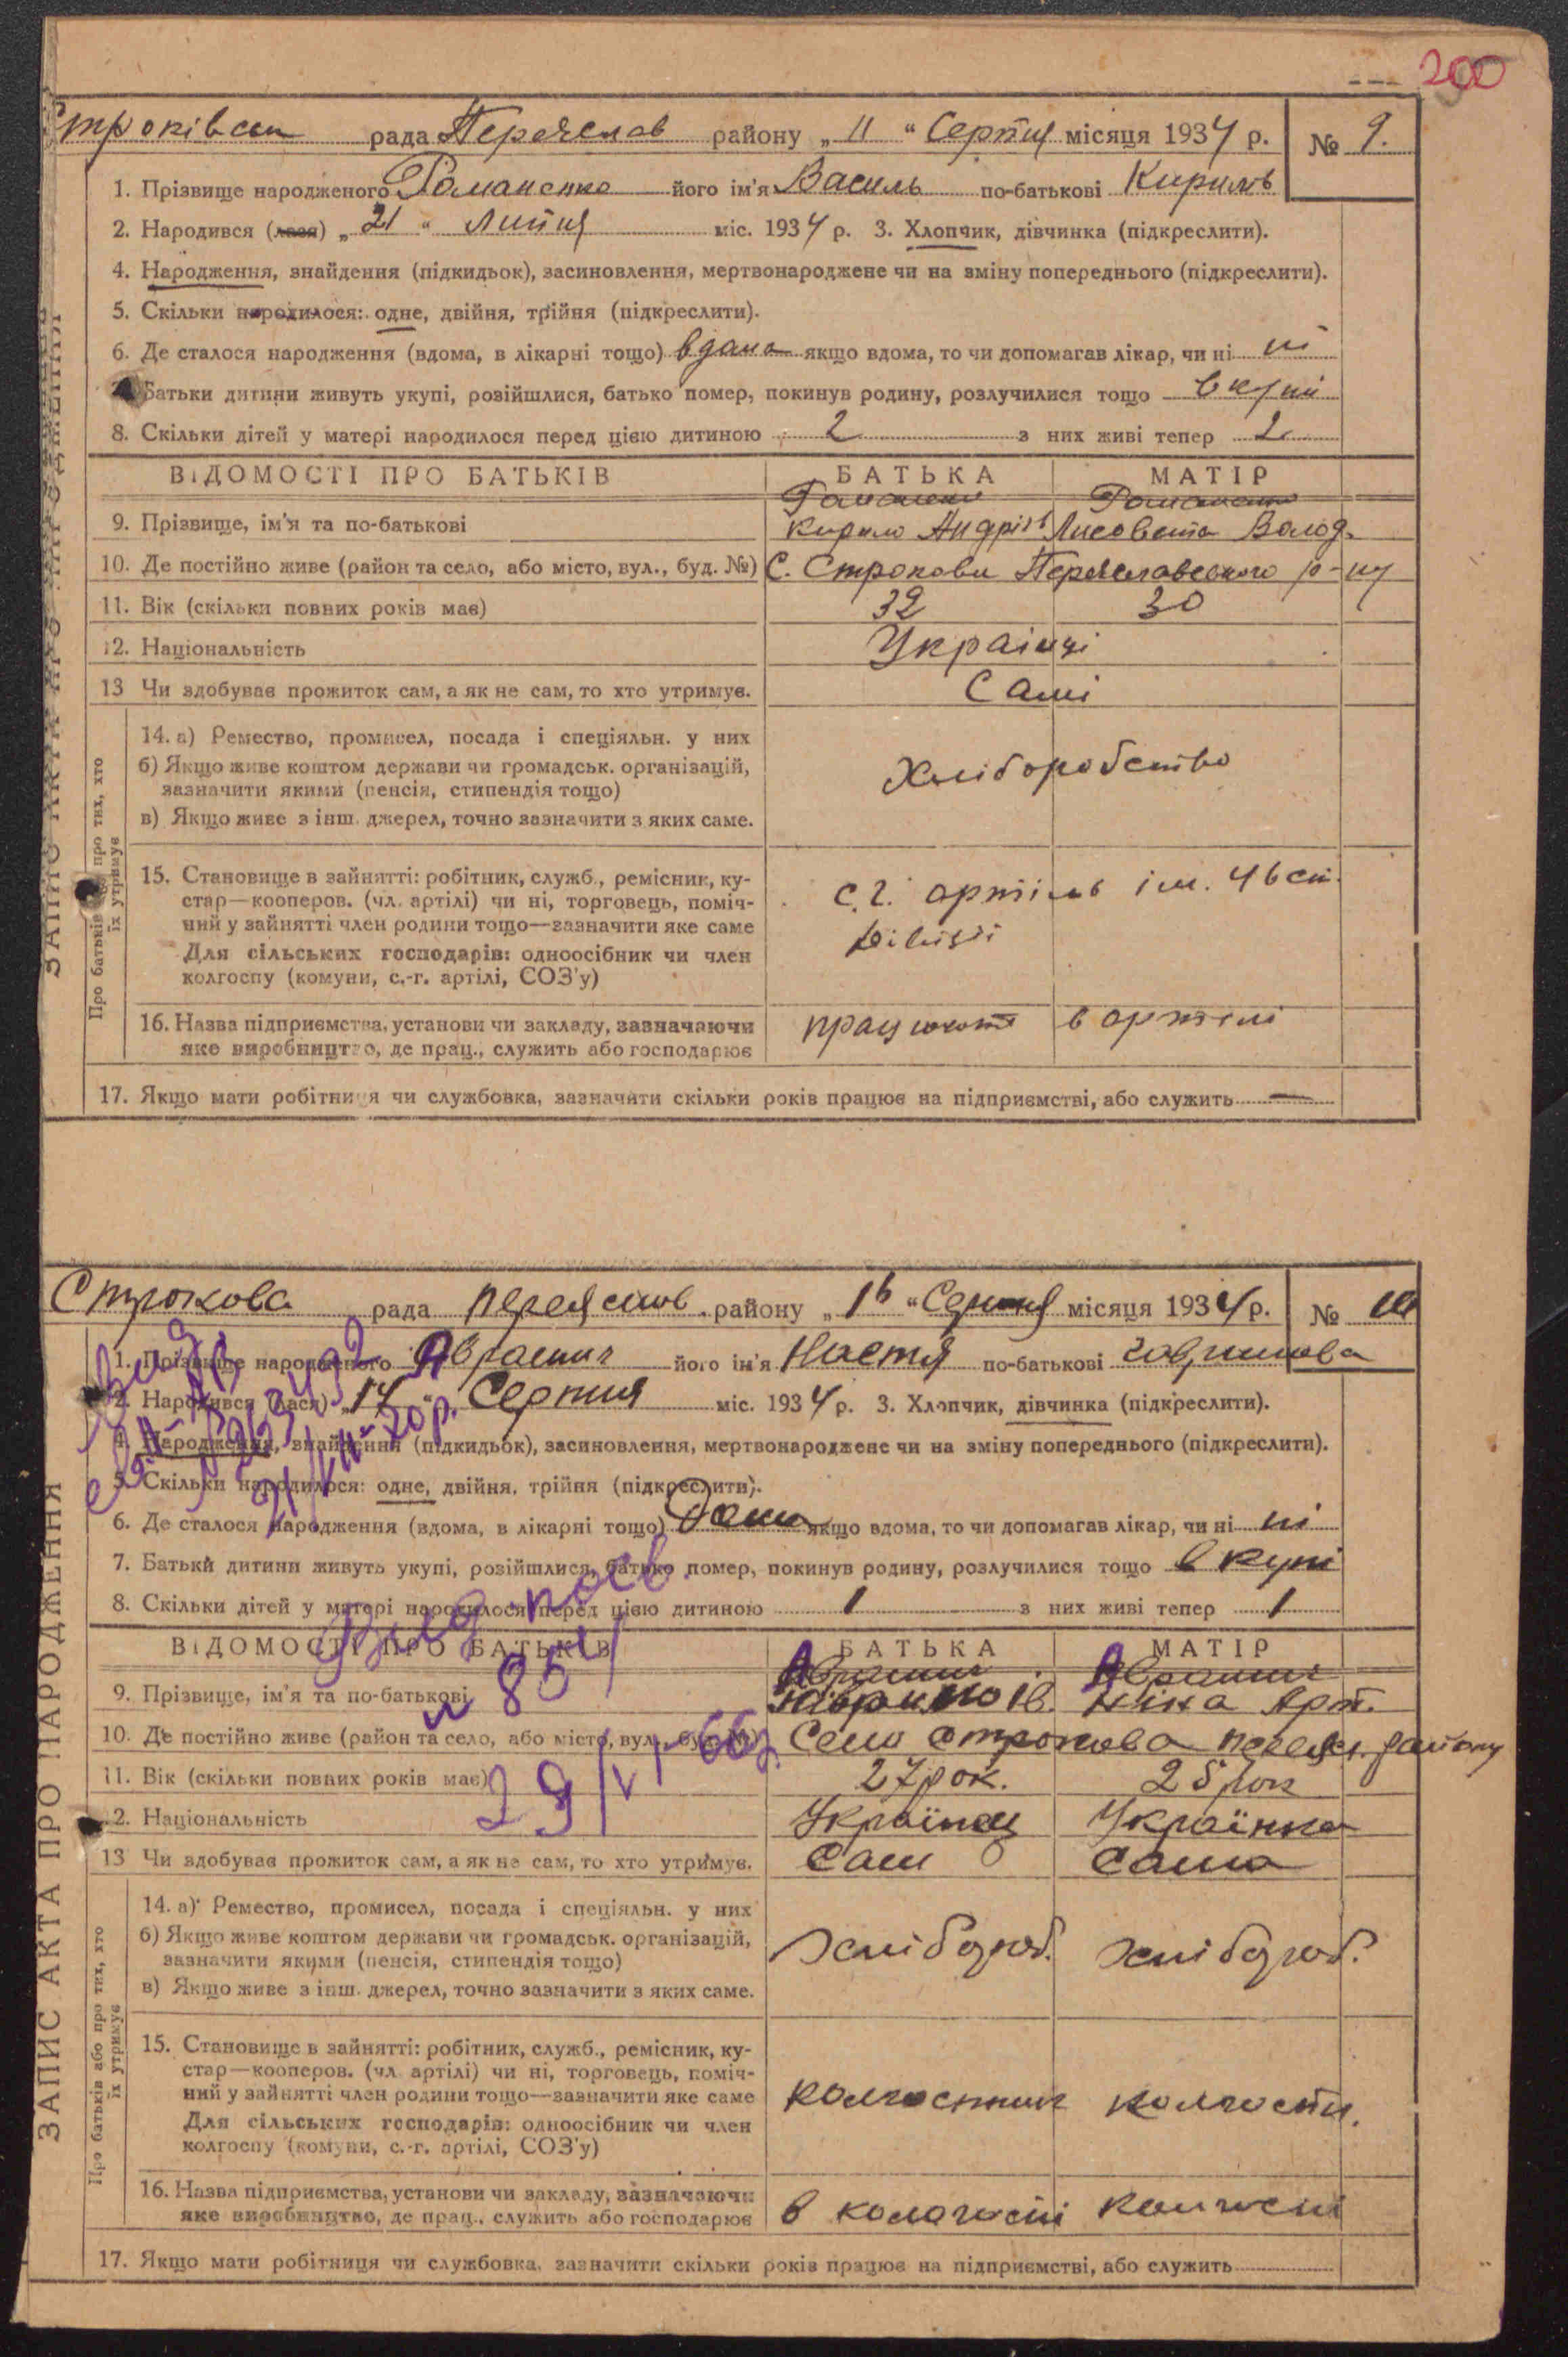 200
Строківська рада Переяслав району „ 11 “ Серпня місяця 1934 р. № 9.
1. Прізвище народженого Романенко його ім'я Василь по-батькові Кирилів
2. Народився (лася) „ 21 “ Липня міс. 1934 р. 3. Хлопчик, дівчинка (підкреслити).
4. Народження, знайдення (підкидьок), засиновлення, мертвонароджене чи на зміну попереднього (підкреслити).
5. Скільки народилося: одне, двійня, трійня (підкреслити).
6. Де сталося народження (вдома, в лікарні тощо) вдома якщо вдома, то чи допомагав лікар, чи ні ні
Батьки дитини живуть укупі, розійшлися, батько помер, покинув родину, розлучилися тощо вкупі
8. Скільки дітей у матері народилося перед цією дитиною 2 з них живі тепер 2
ВІДОМОСТІ ПРО БАТЬКІВ БАТЬКА МАТІР
Романенко Романенко
9. Прізвище, ім'я та по-батькові Кирило Андріїв Лисовета Волод.
10. Де постійно живе (район та село, або місто, вул., буд. №) С. Строкови Переяславського р-ну
11. Вік (скільки повних років має) 32 30
12. Національність Українці
13 Чи здобував прожиток сам, а як не сам, то хто утримує. Самі
14. а) Ремество, промисел, посада і спеціяльн. у них
б) Якщо живе коштом держави чи громадськ. організацій,
зазначити якими (пенсія, стипендія тощо) Хліборобство
в) Якщо живе з інш. джерел, точно зазначити з яких саме.
15. Становище в зайнятті: робітник, служб., ремісник, ку-
стар—кооперов. (чл. артілі) чи ні, торговець, поміч- с.г. артіль ім.
ний у зайнятті член родини тощо—зазначити яке саме дівізії
Для сільських господарів: одноосібник чи член
колгоспу (комуни, с.-г. артілі, СОЗ'у)
16. Назва підприємства, установи чи закладу, зазначаючи працюють в артілі
яке виробництво, де прац., служить або господарює
17. Якщо мати робітниця чи службовка, зазначити скільки років працює на підприємстві, або служить —
Про батьків про тих, хто їх утримує
Строкова рада переяслов. району „ 16 “ Серпня місяця 1934 р. № 10
1. Прізвище народженого Аврамич його ім'я Настя по-батькові Гаврилова
2. Народився (лася) „ 14 “ Серпня міс. 1934 р. 3. Хлопчик, дівчинка (підкреслити).
4. Народження, знайдення (підкидьок), засиновлення, мертвонароджене чи на зміну попереднього (підкреслити).
5. Скільки народилося: одне, двійня, трійня (підкреслити).
6. Де сталося народження (вдома, в лікарні тощо) Дома якщо вдома, то чи допомагав лікар, чи ні ні
7. Батьки дитини живуть укупі, розійшлися, батько помер, покинув родину, розлучилися тощо вкупі
8. Скільки дітей у матері народилося перед цією дитиною 1 з них живі тепер 1
ВІДОМОСТІ ПРО БАТЬКІВ БАТЬКА МАТІР
Аврамич Аврамич
9. Прізвище, ім'я та по-батькові Гаврило Ів. Ніна Арт.
10. Де постійно живе (район та село, або місто, вул., буд. №) Село Строкова переясл. району
11. Вік (скільки повних років має) 27 рок. 25 рок
12. Національність Українец Українка
13 Чи здобував прожиток сам, а як не сам, то хто утримує. Сам Сама
14. а) Ремество, промисел, посада і спеціяльн. у них
б) Якщо живе коштом держави чи громадськ. організацій, Хлібороб. хлібороб.
зазначити якими (пенсія, стипендія тощо)
в) Якщо живе з інш. джерел, точно зазначити з яких саме.
15. Становище в зайнятті: робітник, служб., ремісник, ку-
стар—кооперов. (чл. артілі) чи ні, торговець, поміч-
ний у зайнятті член родини тощо—зазначити яке саме колгоспник колгоспн.
Для сільських господарів: одноосібник чи член
колгоспу (комуни, с.-г. артілі, СОЗ'у)
16. Назва підприємства, установи чи закладу, зазначаючи в колгоспі колгоспі
яке виробництво, де прац., служить або господарює
17. Якщо мати робітниця чи службовка, зазначити скільки років працює на підприємстві, або служить
ЗАПИС АКТА ПРО НАРОДЖЕННЯ
Про батьків або про тих, хто їх утримує
29/VI-66р.